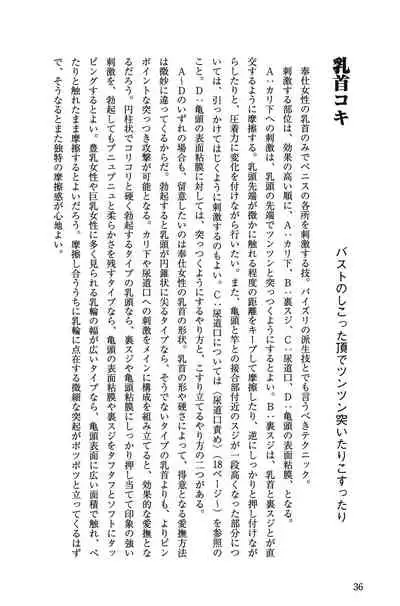 乳首コキ
バストのしこった頂でツンツン突いたりこすったり
奉仕女性の乳首のみでペニスの各所を刺激する技。パイズリの派生技とでも言うべきテクニック。
刺激する部位は、効果の高い順に、A：カリ下、B：裏スジ、C：尿道口、D：亀頭の表面粘膜、となる。
A：カリ下への刺激は、乳頭の先端でツンツンと突っつくようにするとよい。B：裏スジは、乳首と裏スジとが直
交するように摩擦する。乳頭先端が微かに触れる程度の距離をキープして摩擦したり、逆にしっかりと押し当てなが
らしたりと、圧着力に変化を付けながら行いたい。また、亀頭と竿との接合部付近のスジが一段高くなった部分につ
いては、引っかけてはじくように刺激するのもよい。C：尿道口については〈尿道口責め〉（18ページ～）を参照の
こと。D：亀頭の表面粘膜に対しては、突っつくようにするやり方と、こすり立てるやり方の二つがある。
A～Dのいずれの場合も、留意したいのは奉仕女性の乳首の形状。乳首の形や硬さによって、得意となる愛撫方法
は微妙に違ってくるからだ。勃起すると乳頭が円錐状に尖るタイプなら、そうでないタイプの乳首よりも、よりピン
ポイントな突っつき攻撃が可能となる。カリ下や尿道口への刺激をメインに構成を組み立てると、効果的な愛撫とな
るだろう。円柱状でコリコリと硬く勃起するタイプの乳頭なら、裏スジや亀頭粘膜にしっかり押し当てて印象の強い
刺激を、勃起してもプニュプニュと柔らかさを残すタイプなら、亀頭の表面粘膜や裏スジをタフタフとソフトにタッ
ピングするとよい。豊乳女性や巨乳女性に多く見られる乳輪の幅が広いタイプなら、亀頭表面に広い面積で触れ、ペ
たりと触れたまま摩擦するとよいだろう。摩擦し合ううちに乳輪に点在する微細な突起がポツポツと立ってくるはず
で、そうなるとまた独特の摩擦感が心地よい。
36